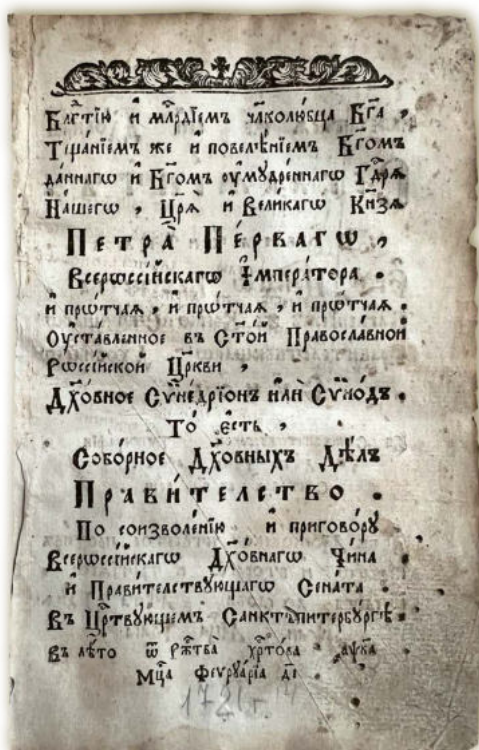 Бл҃гтїю и҆ млⷭ҇рдїемъ чл҃колю́бца Бг҃а ,
Тща́нїемъ же и҆ повелѣ́нїемъ Бг҃омъ
да́ннагѡ и҆ Бг҃омъ ᲂумꙋдре́ннагѡ Гдⷭ҇рѧ
На́шегѡ , Цр҃ѧ̀ и҆ Вели́кагѡ Кн҃зѧ
Петра̀ Пе́рвагѡ ,
Всерѡссі́йскагѡ І҆мпера́тора .
и҆ прѡ́тчаѧ , и҆ прѡ́тчаѧ , и҆ прѡ́тчаѧ .
Оуста́вленное въ Ст҃о́й Правосла́вной
Рѡссі́йской Цр҃кви ,
Дх҃о́вное Сѷне́дрїонъ и҆лѝ Сѷно́дъ .
То̀ є҆́сть ,
Собо́рное Дх҃о́вныхъ Дѣ́лъ
Прави́телство .
По соизволе́нїю и҆ пригово́рꙋ
Всерѡссі́йскагѡ Дх҃о́внагѡ Чи́на
и҆ Прави́телствꙋющагѡ Сена́та
въ Црⷭ҇твꙋющемъ Санктъпитербꙋ́ргѣ .
въ лѣ́то ѿ ржⷭ҇тва̀ хрⷭ҇то́ва ҂аѱка
Мцⷭ҇а Феѵрꙋа́рїа д҃і
1721 г. 14